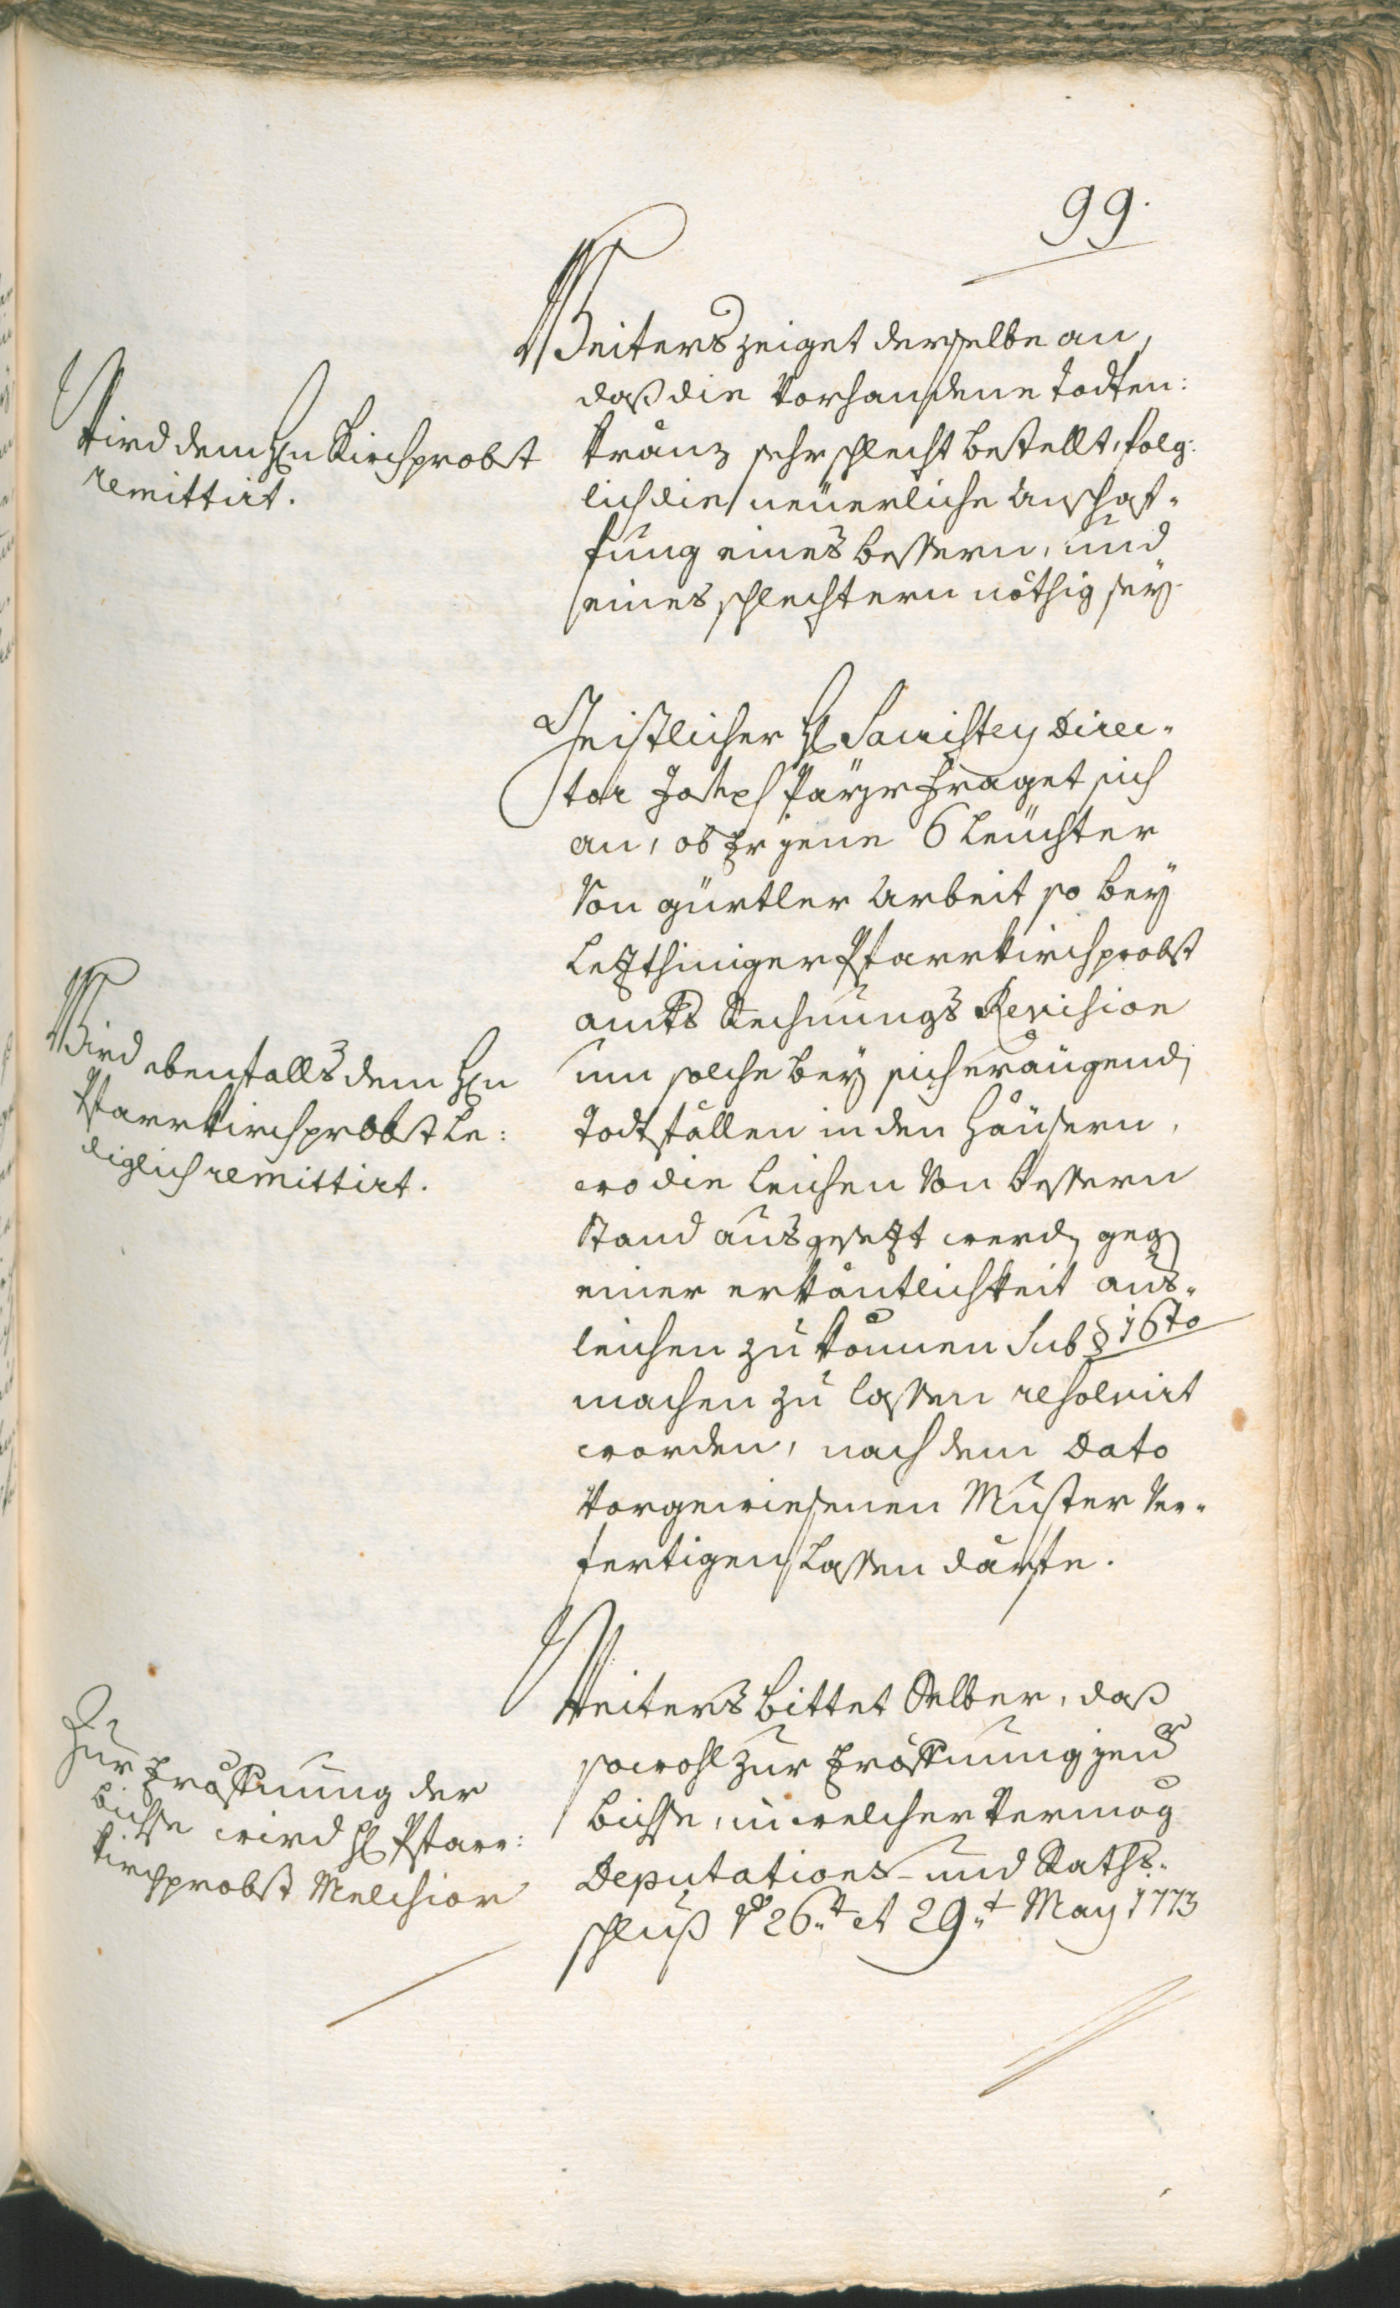 99.
Weiters zeiget derselbe an,
daß die vorhandene Todten:
Kränz sehr schlecht bestellt, folg:
lich die neüerliche Anschaf-
fung eines bessern, und
eines schlechtern nöthig sey
Wird dem Hn Kirchprobst
remittirt.
Geistlicher H Sacristey Direc-
tor Joseph fraget sich
an, ob Er jene 6 Leüchter
von gürtler Arbeit so bey
letzthiniger Pfarrkirchprobst
amts Rechnungs Revision
um solche bey sich eraügend
Todtfällen in den Häusern,
wo die Leichen von bessern
Stand ausgesetzt werd geg
einer erkäntlichkeit aus-
leichen zu können Sub § 16to
machen zu lassen resolvirt
worden, nach dem Dato
vorgewiesenen Muster ver-
fertigen lassen därfte.
Wird ebenfalls dem Hn
Pfarrkirchprobst le:
diglich remittirt.
Weiters bittet Selber, daß
sowohl zur Eröffnung jener
bichse, in welcher vermög
Deputations- und Raths-
schluß de 26.t et 29.t May 1773
Zur Eröffnung der
bichse wird H Pfarr:
kirchprobst Melchior